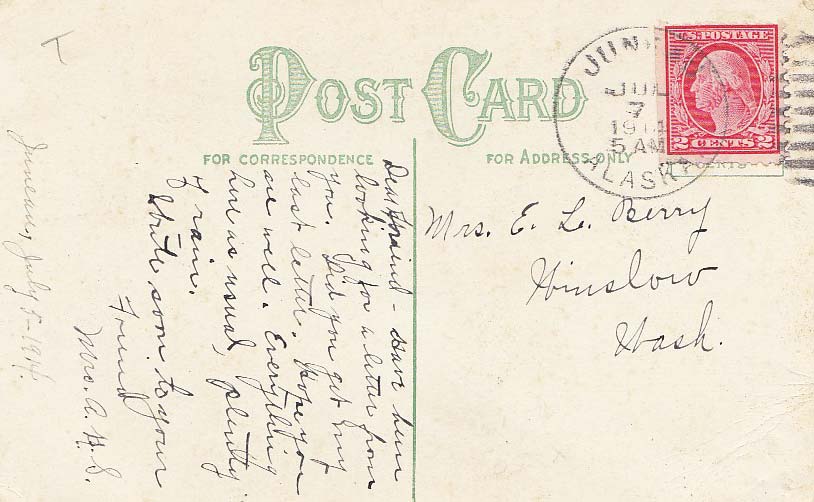 POST CARD
FOR CORRESPONDENCE
FOR ADDRESS ONLY
JUN
ALASKA
JUL
7
191
5 AM
U.S. POSTAGE
2 CENTS 2
Juneau, July 5-1914.
Dear Friend - Have been
looking for a letter from
you. Did you get my
last letter. Hope you
are well. Everything
here as usual, plenty
of rain.
Write soon to your
Friend
Mrs. A. H. S.
Mrs. E. L. Berry
Winslow
Wash.